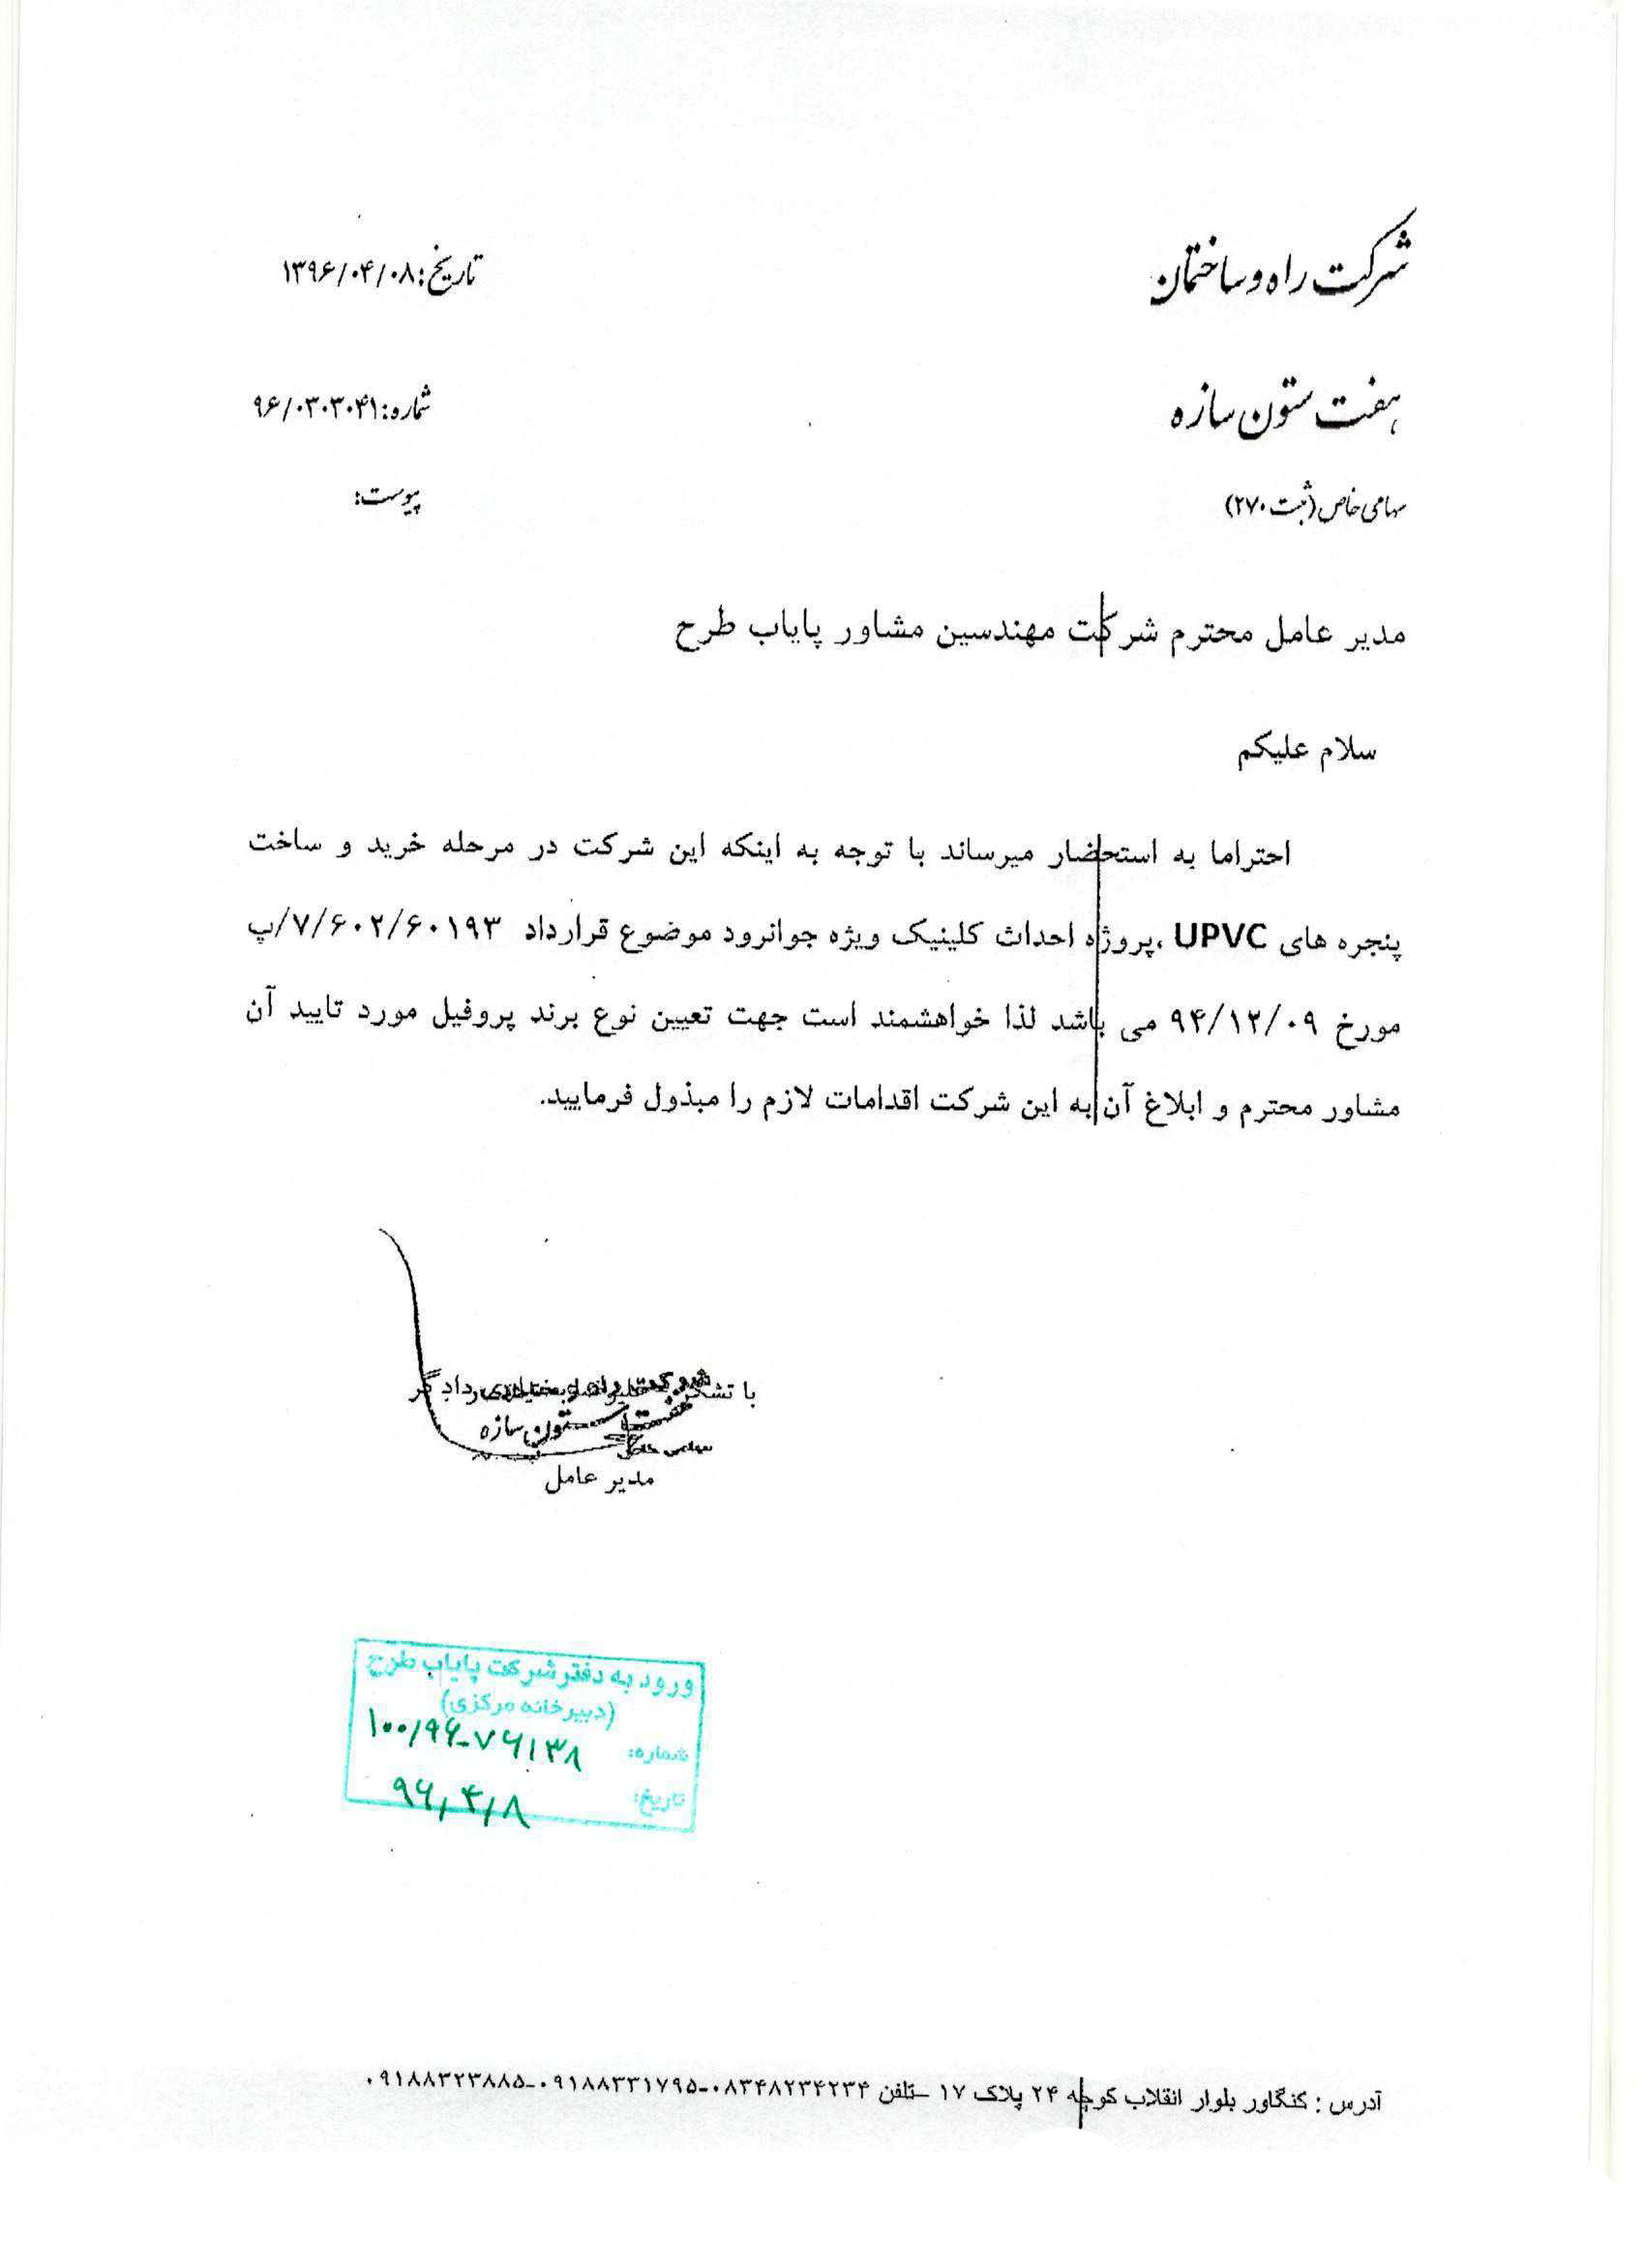 شرکت راه و ساختمان
تاریخ: ۱۳۹۶/۰۴/۰۸
هفت ستون سازه
شماره: ۹۶/۰۳۰۳۰۴۱
سهامی خاص (ثبت ۲۷۰)
پیوست:
مدیر عامل محترم شرکت مهندسین مشاور پایاب طرح
سلام علیکم
احتراما به استحضار میرساند با توجه به اینکه این شرکت در مرحله خرید و ساخت
پنجره های UPVC ،پروژه احداث کلینیک ویژه جوانرود موضوع قرارداد ۷/۶۰۲/۶۰۱۹۳/پ
مورخ ۹۴/۱۲/۰۹ می باشد لذا خواهشمند است جهت تعیین نوع برند پروفیل مورد تایید آن
مشاور محترم و ابلاغ آن به این شرکت اقدامات لازم را مبذول فرمایید.
با تشکر دادگر
شرکت راه و ساختمان
هفت ستون سازه
سهامی خاص
مدیر عامل
ورود به دفتر شرکت پایاب طرح
(دبیرخانه مرکزی)
شماره: ۱۰۰/۹۶-۷۶۱۳۸
تاریخ: ۹۶/۴/۸
آدرس : کنگاور بلوار انقلاب کوچه ۲۴ پلاک ۱۷ –تلفن ۰۸۳۴۸۲۳۴۲۳۴-۰۹۱۸۸۳۳۱۷۹۵-۰۹۱۸۸۳۲۳۸۸۵